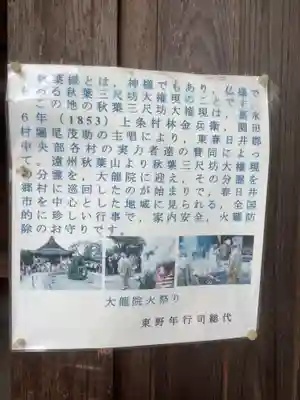 秋葉様とは、神様でもあり、仏様で
もある秋葉三尺坊大権現のことです。
この地の秋葉三尺坊大権現は、嘉永
6年(1853)上条村林金兵衛、関田
村堀尾茂助の主唱により、東春日井郡
中央部各村の実力者達の賛同によっ
て、遠州秋葉山より秋葉三尺坊大権現
の分霊を、大龍院に迎え、その分霊を
郷村に巡回したのが始まりで、春日井
市を中心とした地域に見られる、全国
的に珍しい行事で、家内安全、火難防
除のお守りです。
大龍院火祭り
東野年行司総代